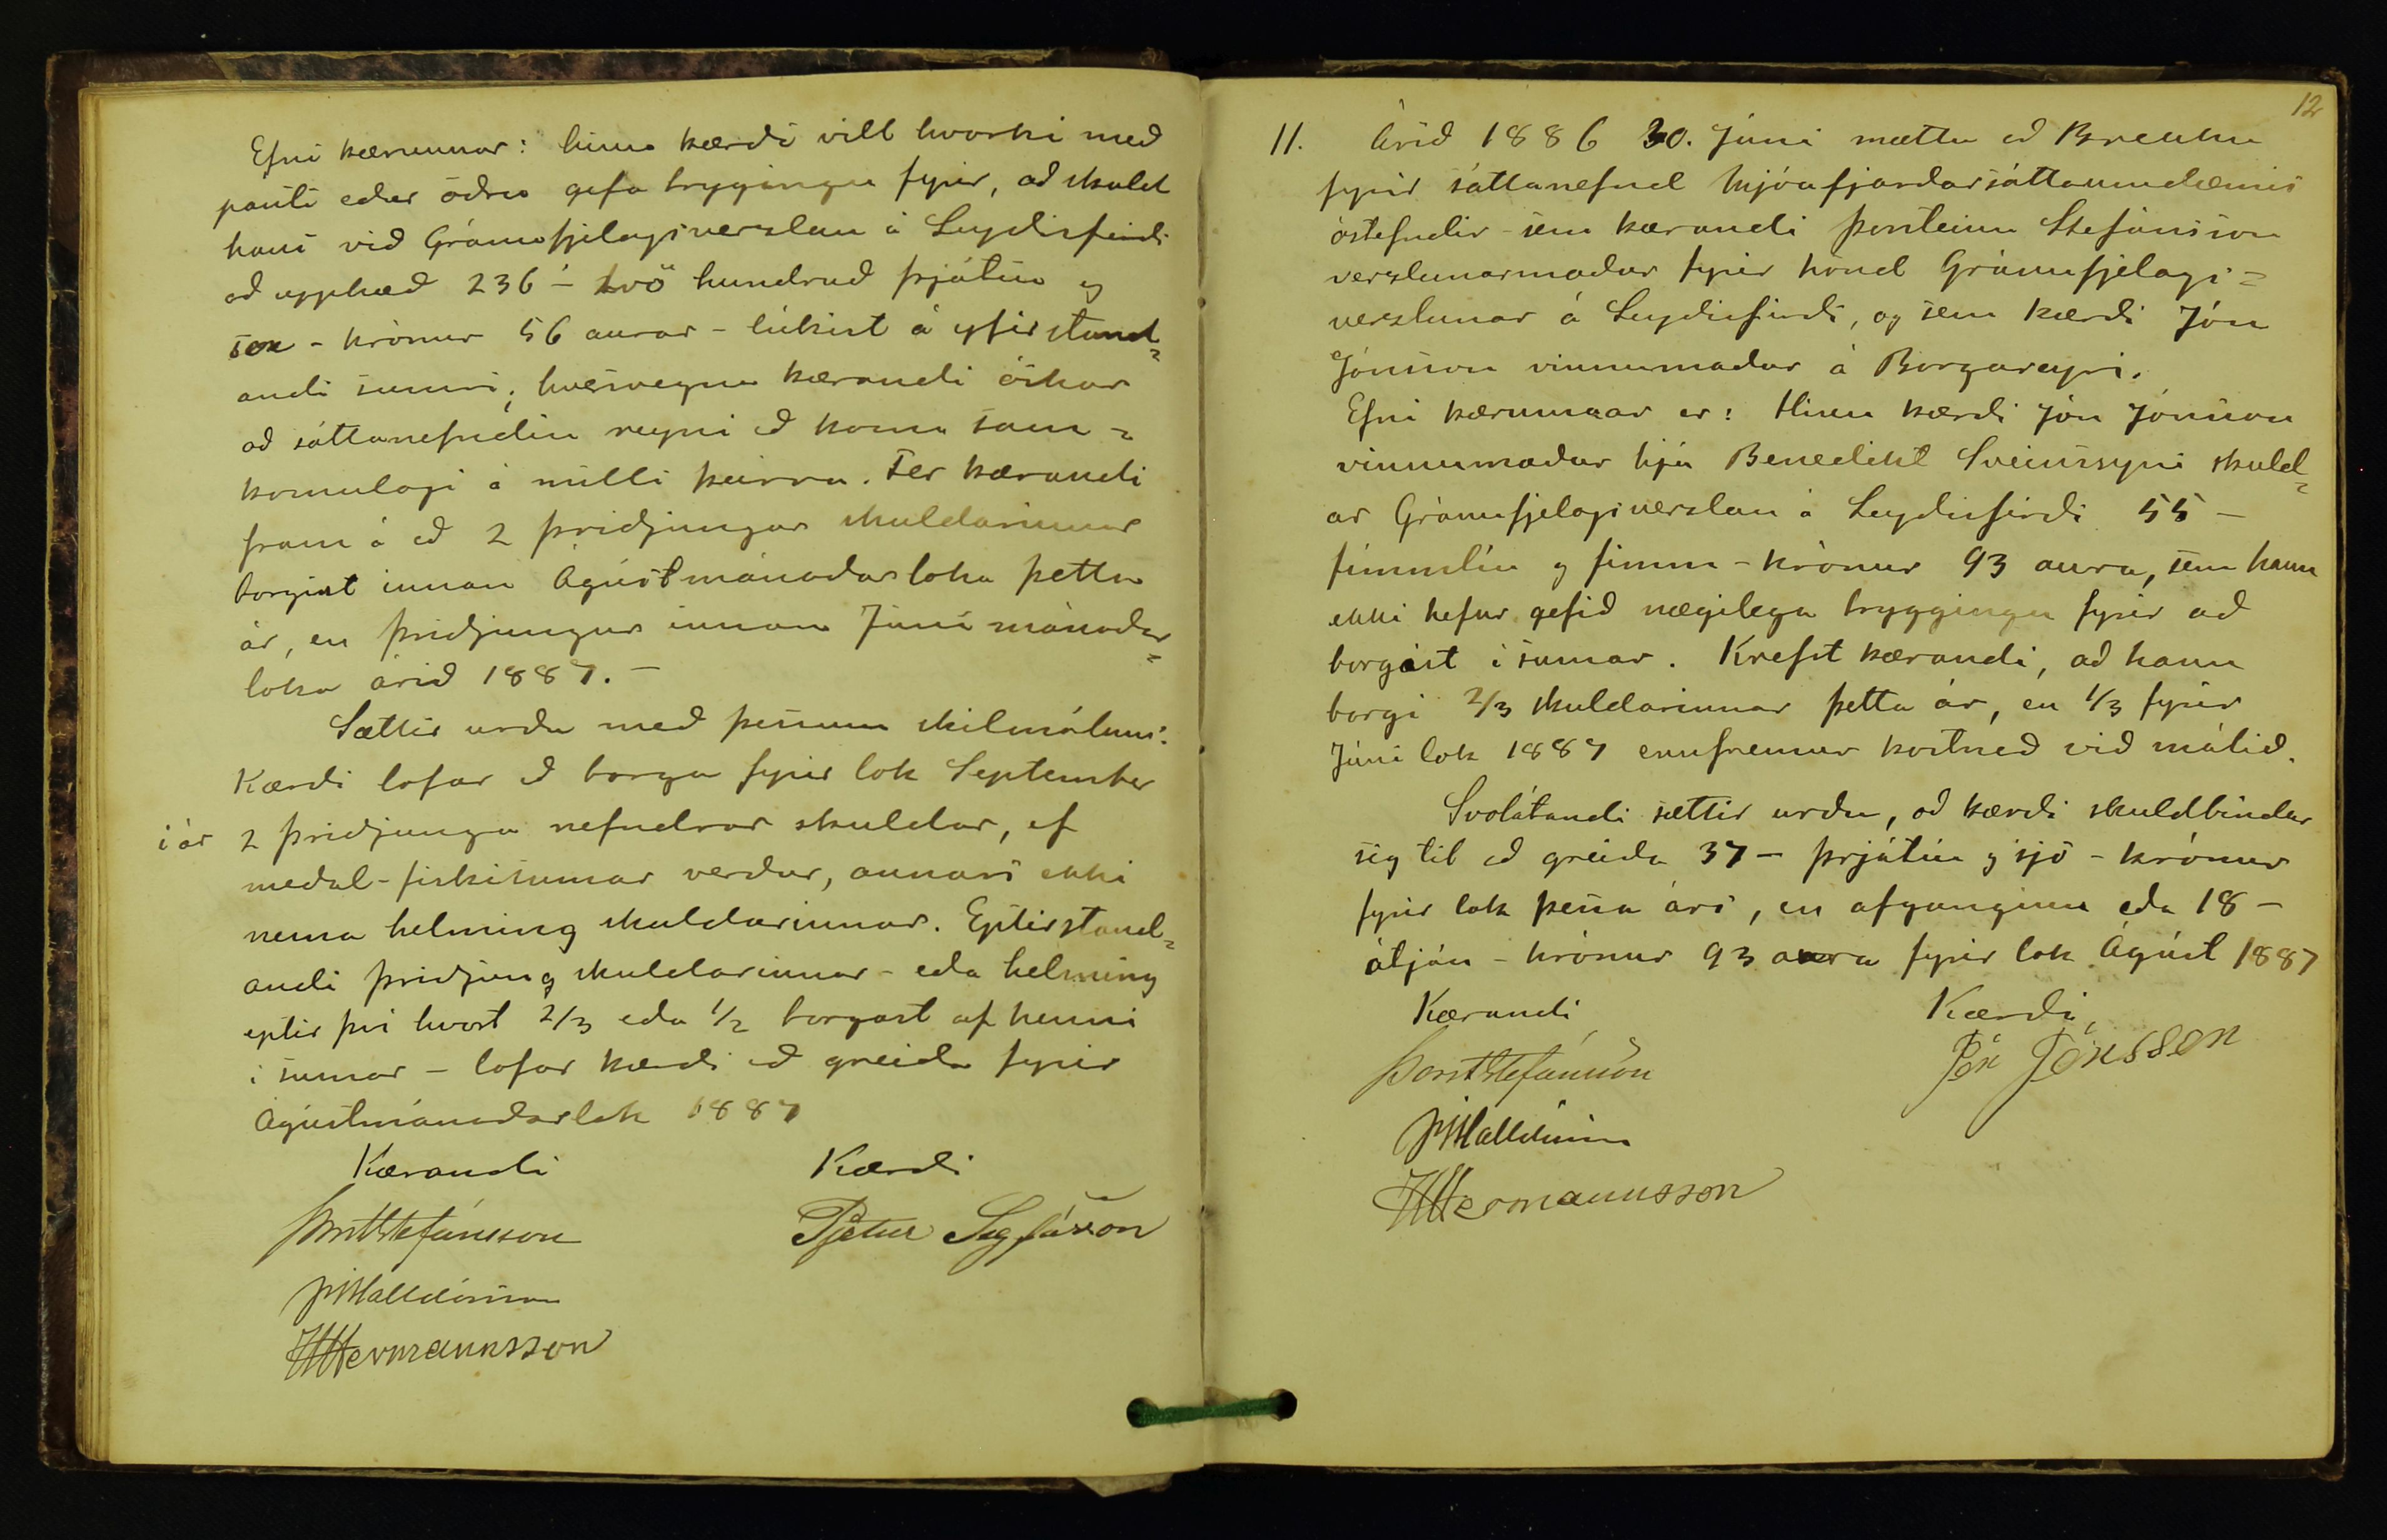 Efni kærunnar: hinn kærdi vill hvorki með
panti eður öðru gefa tryggingu fyrir, að skuld
hans við Gránufjelagsverzlun á Seyðisfirði
að upphæð 236 – tvö hundruð þrjátíu og
sex – krónur 56 aurar – lúkist á yfirstand=
andi sumri; hversvegna kærandi óskar
að sáttanefndin reyni að koma sam=
komulagi á milli þeirra. Fer kærandi
fram á að 2 þriðjungar skuldarinnar
borgist innan Ágústmánaðarloka þetta
ár, en þriðjungur innan Júní mánaðar=
loka árið 1887. –
Sættir urðu með þessum skilmálum:
Kærði lofar að borga fyrir lok September
í ár 2 þriðjunga nefndrar skuldar, ef
meðal-fiskisumar verður, annars ekki
nema helming skuldarinnar. Eptirstand=
andi þriðjung skuldarinnar – eða helming
eptir því hvort 2/3 eða 1/2 borgast af henni
í sumar – lofar kærði að greiða fyrir
Ágústmánaðarlok 1887
Kærandi Kærði
Þorst Stefánsson Pjetur Sigfússon
HHermannsson
12
11. Árið 1886 30. Júni mættu að Brekku
fyrir sáttanefnd Mjóafjarðarsáttaumdæmis
óstefndir – sem kærandi Þorsteinn Stefánsson
verzlunarmaður fyrir hönd Gránufjelags=
verzlunar á Seyðisfirði, og sem kærði Jón
Jónsson vinnumaður á Borgareyri.
Efni kærunnar er: Hinn kærði Jón Jónsson
vinnumaður hjá Benedikt Sveinssyni skuld=
ar Gránufjelagsverzlun á Seyðisfirði 55 –
fimmtíu og fimm – krónur 93 aura, sem hann
ekki hefur gefið nægilega tryggingu fyrir að
borgist í sumar. Krefst kærandi, að hann
borgi 2/3 skuldarinnar þetta ár, en 1/3 fyrir
Júni lok 1887 ennfremur kostnað við málið.
Svolátandi sættir urðu, að kærði skuldbindur
sig til að greiða 37 – þrjátíu og sjö – krónur
fyrir lok þessa árs, en afganginn eða 18 –
átján – krónur 93 aura fyrir lok Ágúst 1887
Kærandi Kærði,
Þorst Stefánsson Jón Jónsson
HHermannsson